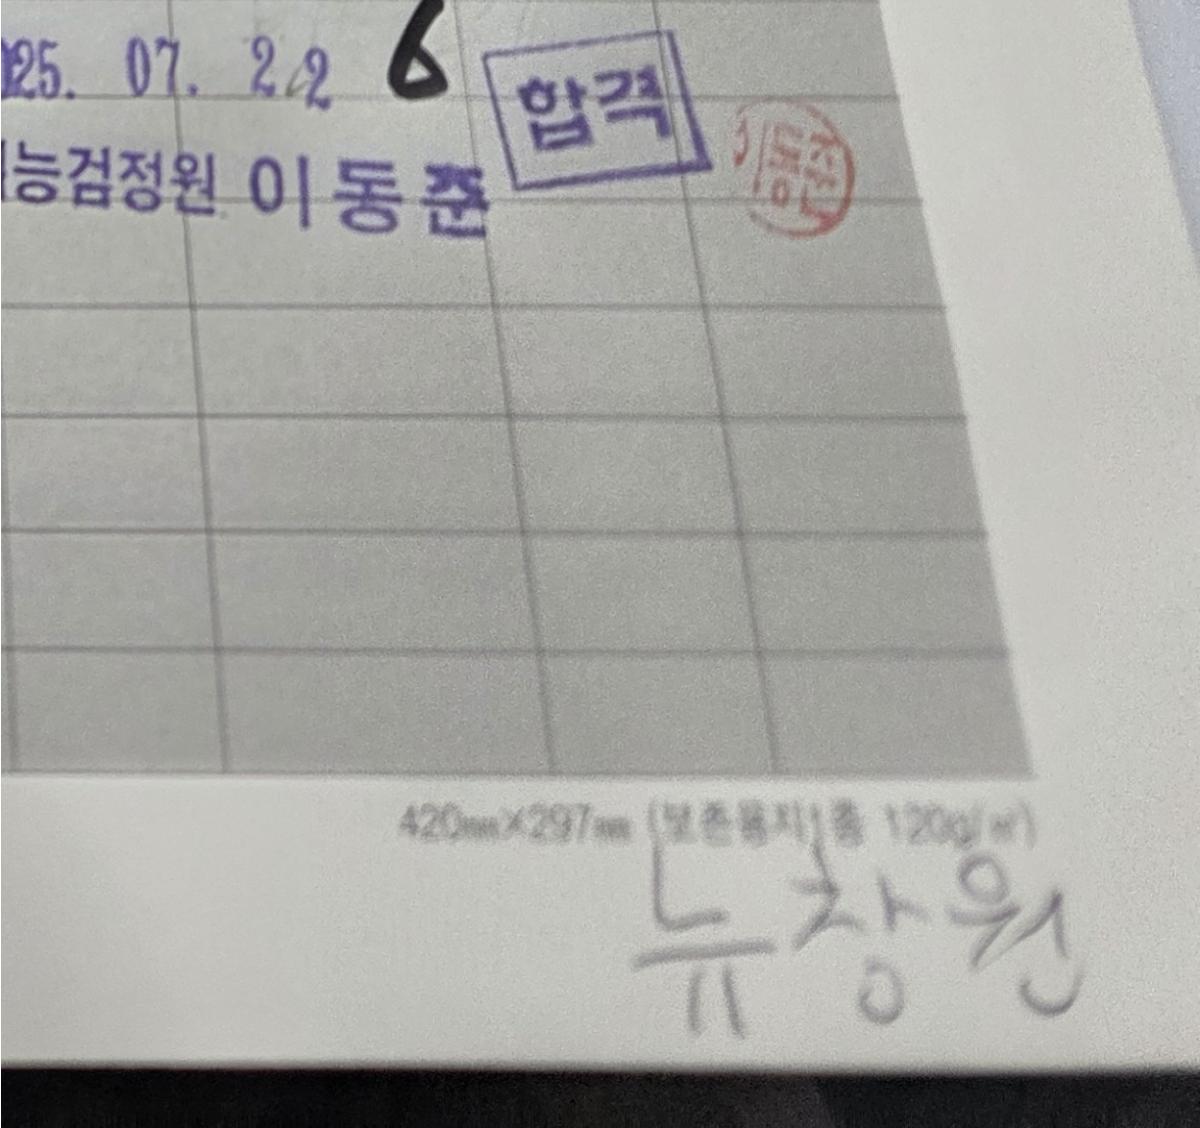 025. 07. 22 6 합격
능검정원 이동준
420mm×297mm (보존용지1종 120g/㎡)
뉴창원